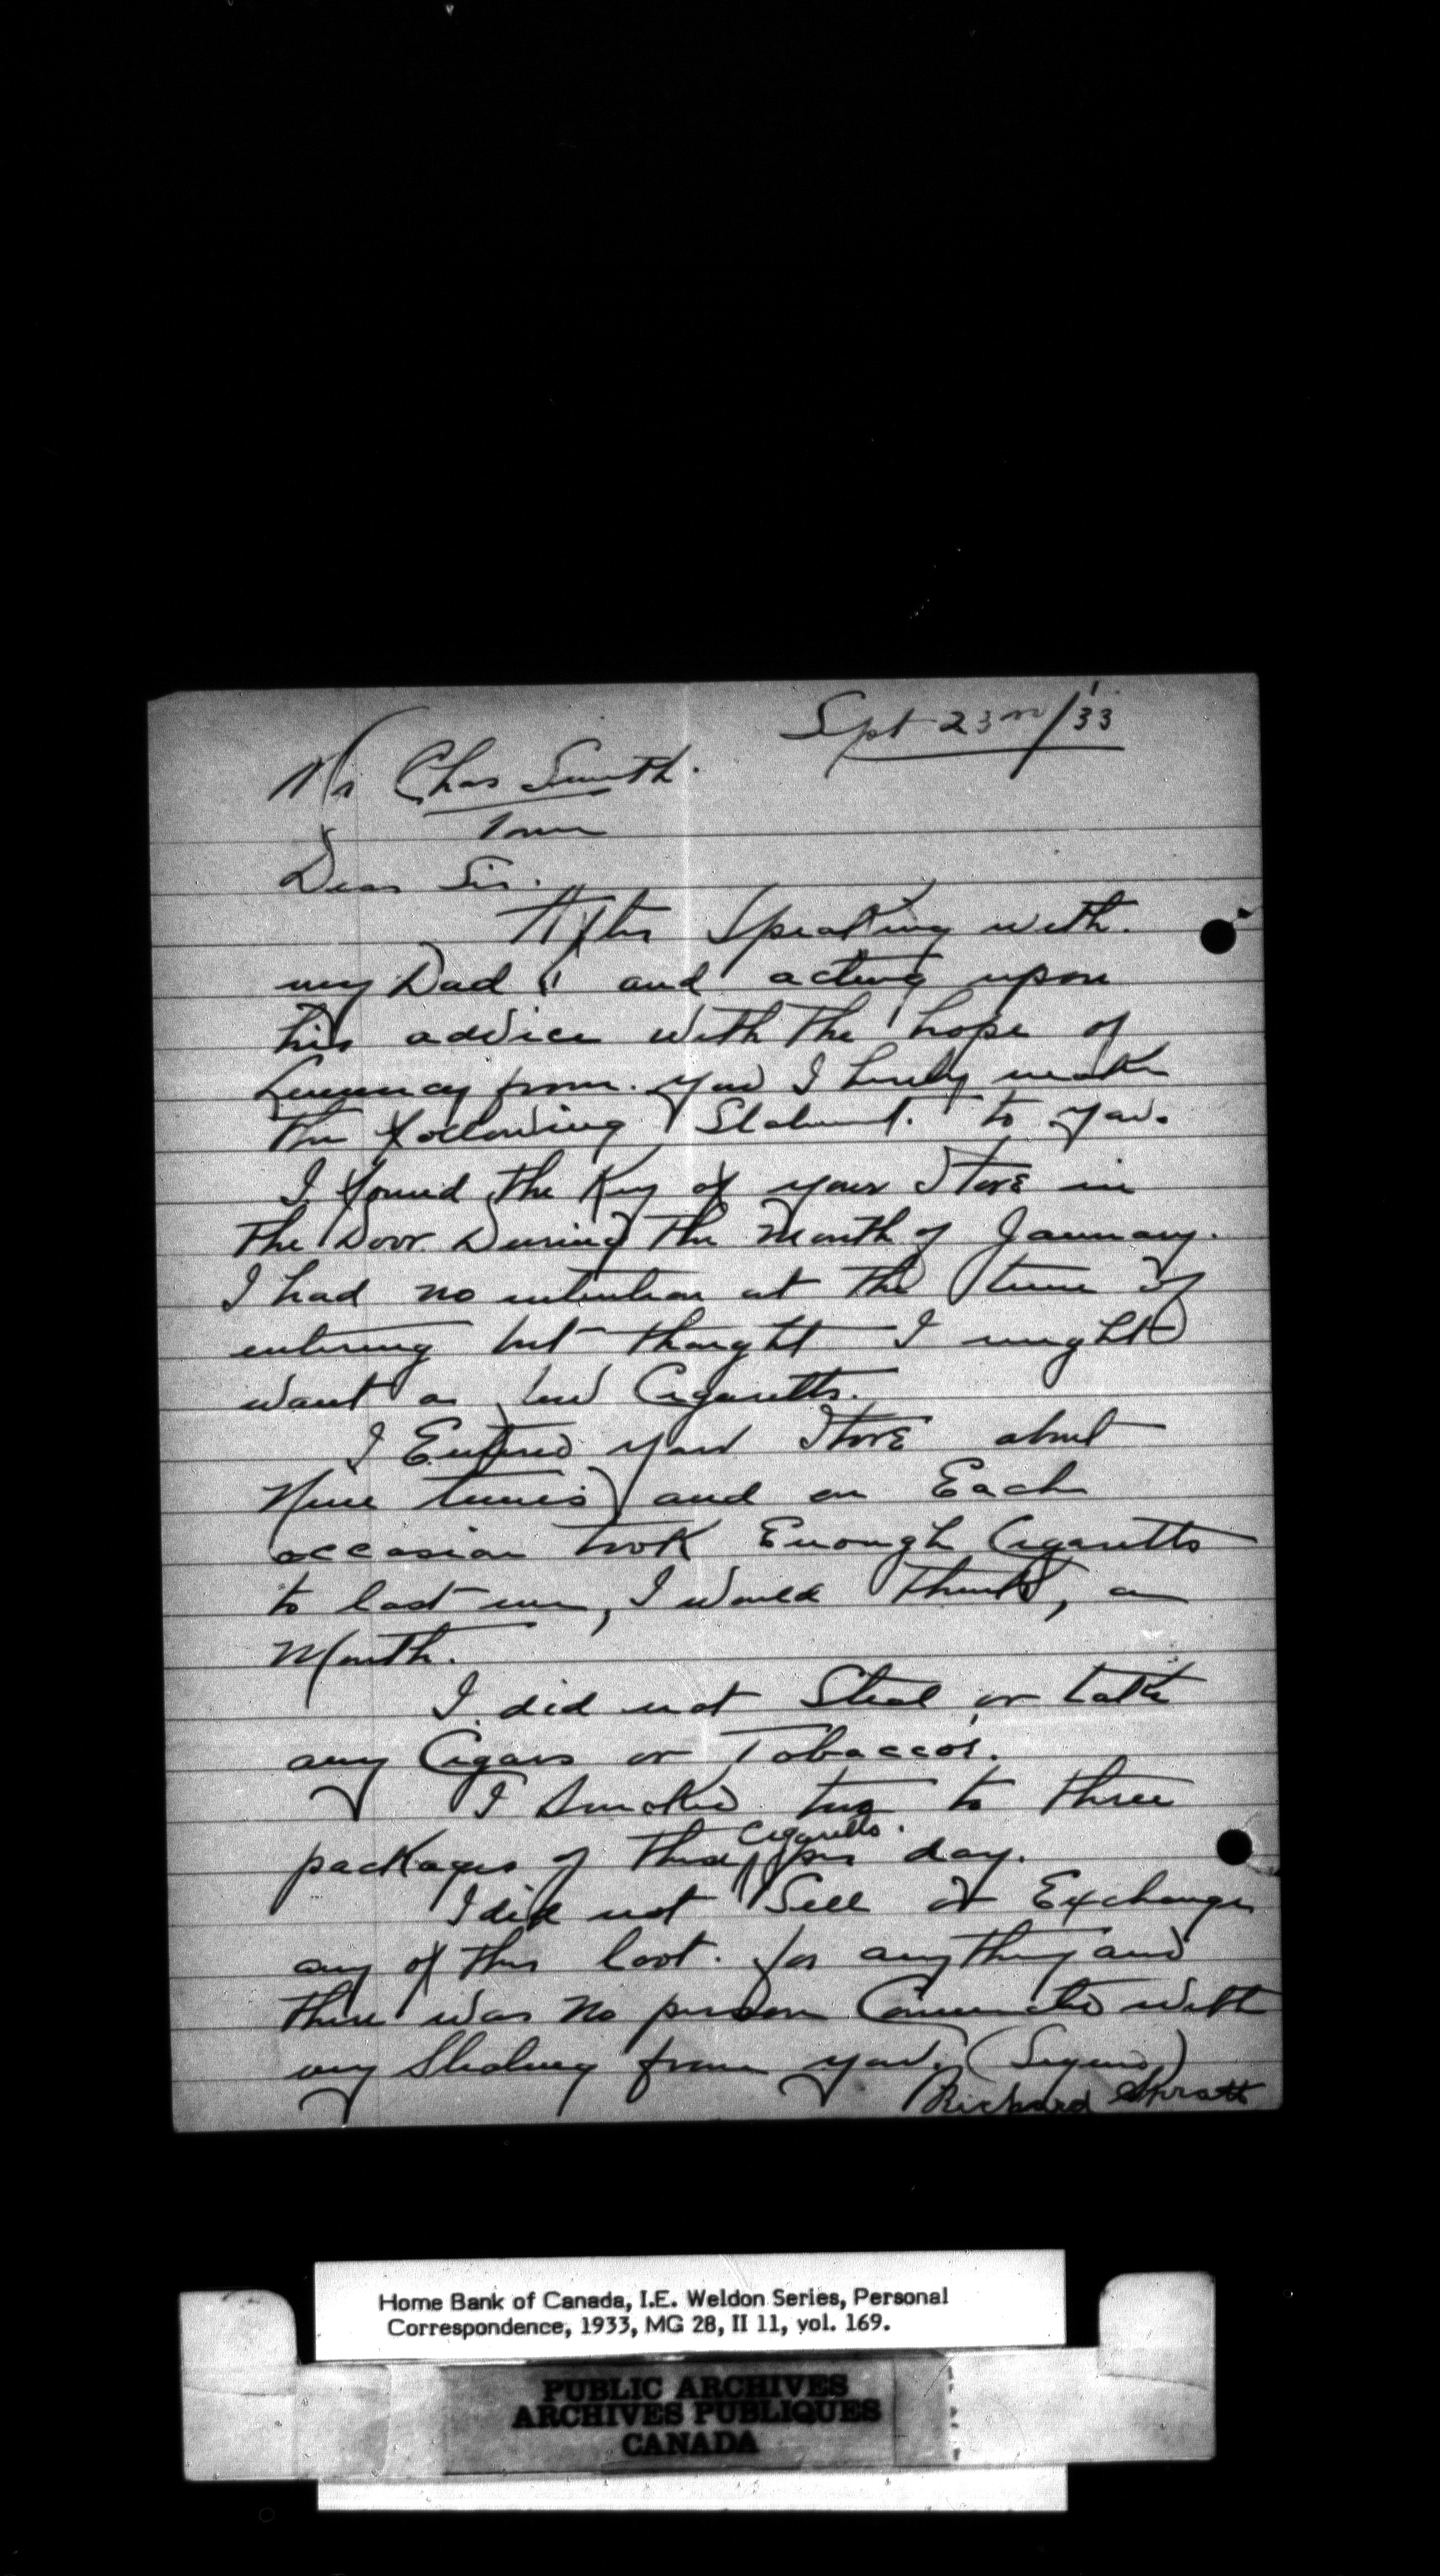 Sept 23rd/33
Mr Chas Smith.
Town
Dear Sir.
After Speaking with.
my Dad, and acting upon
his advice with the hope of
Lenency from you I hereby make
the following Statement. to you.
I found the Key of your Store in
the Door During the month of January.
I had no intention at the time of
entering but thought I might
want a few Cigaretts.
I Entered your Store about
Nine times and on Each
occasion took Enough Cigaretts
to last me, I would think, a
Month.
I did not Steal or take
any Cigars or Tobaccos.
I Smoked two to three
packages of these Cigaretts. per day.
I did not Sell or Exchange
any of this loot. for anything and
there was no person Connected with
my Stealing from you. (Signed)
Richard Spratt
Home Bank of Canada, I.E. Weldon Series, Personal
Correspondence, 1933, MG 28, II 11, vol. 169.
PUBLIC ARCHIVES
ARCHIVES PUBLIQUES
CANADA